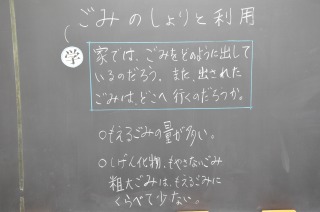 ごみのしょりと利用
学
家では、ごみをどのように出して
いるのだろう。また、出された
ごみは、どこへ行くのだろうか。
○もえるごみの量が多い。
○しげん化物、もやさないごみ
粗大ごみは、もえるごみに
くらべて少ない。